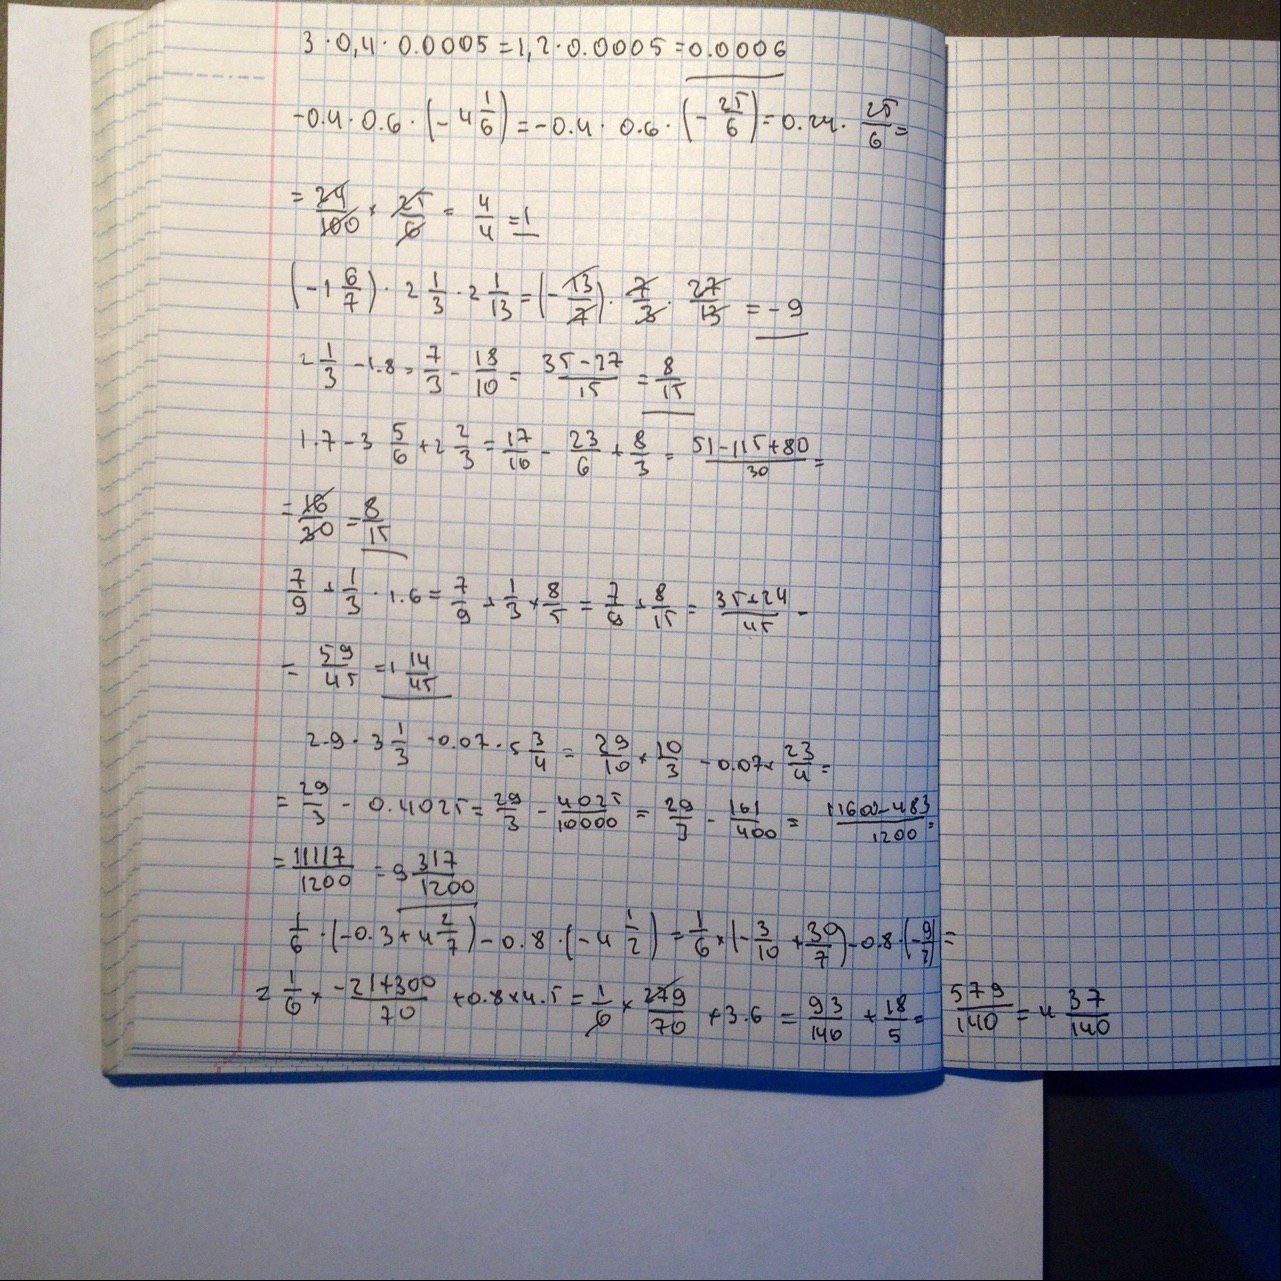 3 · 0,4 · 0.0005 = 1,2 · 0.0005 = 0.0006
-0.4 · 0.6 · (- 4 1/6) = -0.4 · 0.6 · (- 25/6) = 0.24 · 25/6 =
= 24/100 × 25/6 = 4/4 = 1
(-1 6/7) · 2 1/3 · 2 1/13 = (- 13/7) · 7/3 · 27/13 = -9
2 1/3 - 1.8 = 7/3 - 18/10 = 35-27/15 = 8/15
1.7 - 3 5/6 + 2 2/3 = 17/10 - 23/6 + 8/3 = 51-115+80/30 =
= 16/30 = 8/15
7/9 + 1/3 · 1.6 = 7/9 + 1/3 × 8/5 = 7/9 + 8/15 = 35+24/45 =
= 59/45 = 1 14/45
2.9 · 3 1/3 - 0.07 · 5 3/4 = 29/10 × 10/3 - 0.07 × 23/4 =
= 29/3 - 0.4025 = 29/3 - 4025/10000 = 29/3 - 161/400 = 11600-483/1200 =
= 11117/1200 = 9 317/1200
1/6 · (-0.3 + 4 2/7) - 0.8 · (-4 1/2) = 1/6 × (- 3/10 + 30/7) - 0.8 · (- 9/2) =
= 1/6 × -21+300/70 + 0.8 × 4.5 = 1/6 × 279/70 + 3.6 = 93/140 + 18/5 = 579/140 = 4 37/140